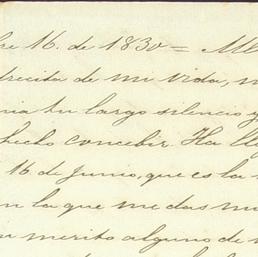 bre 16. de 1830 = Mi
drecita de mi vida,
nia tu largo silencio y
hecho concebir. Ha lle
16 de Junio, que es la
n la que me das mu
merito alguno de